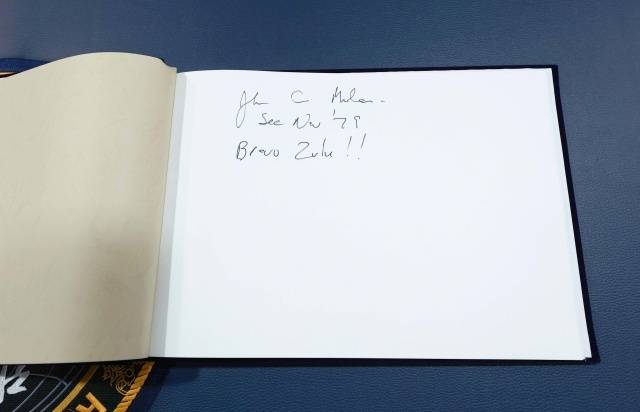 John C Phelan
Sec Nav '79
Bravo Zulu !!